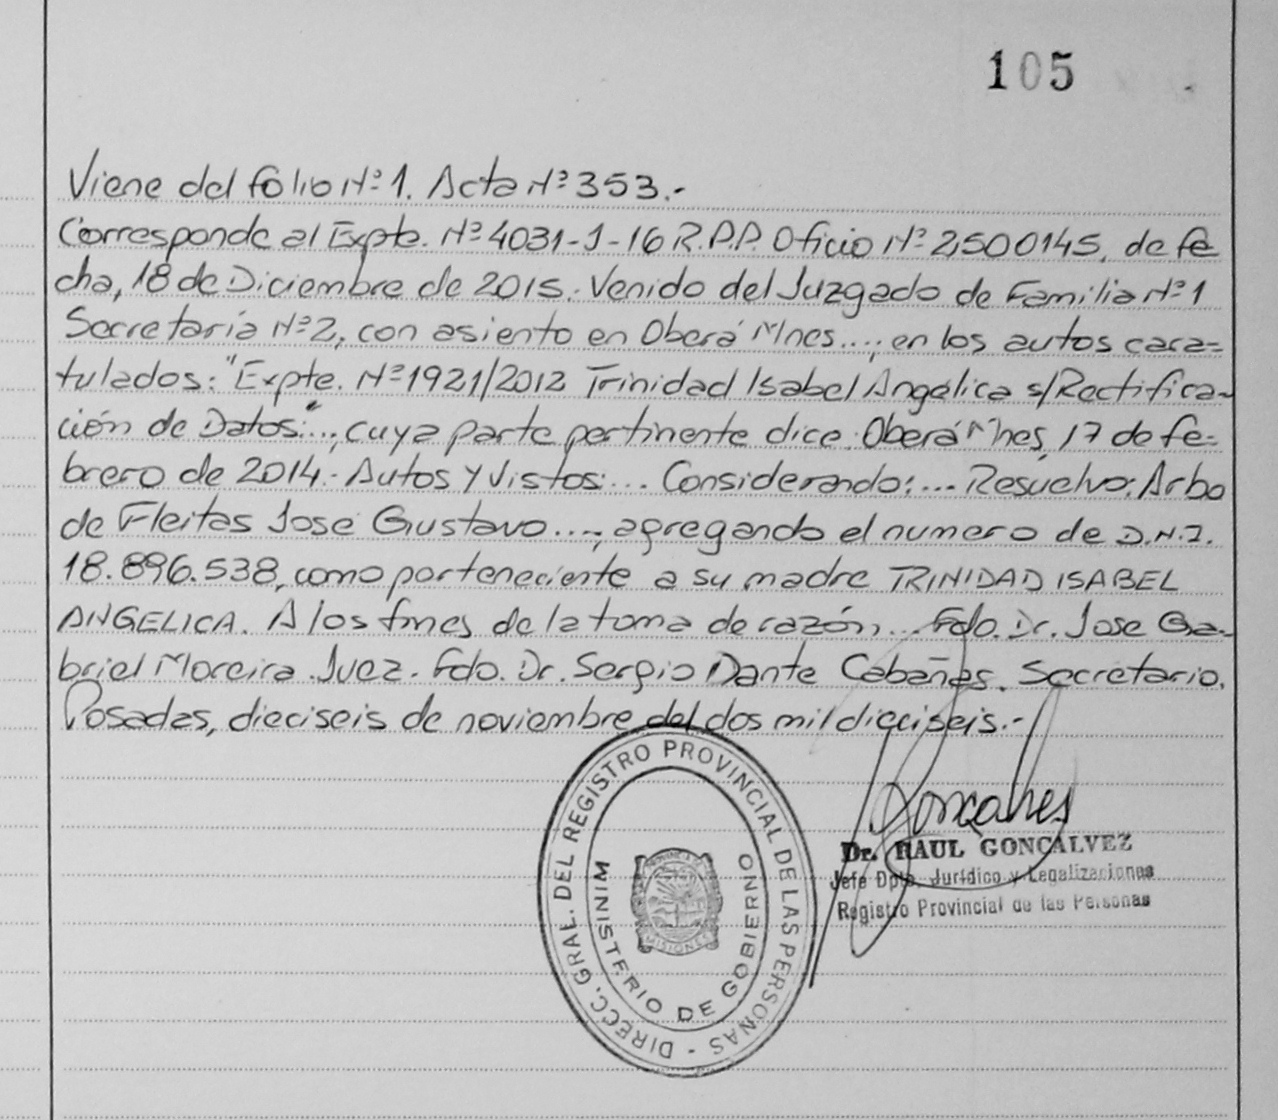 105
Viene del folio Nº 1. Acta Nº 353.-
Corresponde al Expte. Nº 4031-J-16 R.P.P. Oficio Nº 2,500145, de fe
cha, 18 de Diciembre de 2015. Venido del Juzgado de Familia Nº 1
Secretaría Nº 2, con asiento en Oberá Mnes...., en los autos cara=
tulados: "Expte. Nº 1921/2012 Trinidad Isabel Angélica s/Rectifica-
ción de Datos"..., cuya parte pertinente dice: Oberá Mnes, 17 de fe-
brero de 2014.- Autos y Vistos:... Considerando:... Resuelvo: Arbo
de Fleitas José Gustavo...., agregando el numero de D.N.I.
18.896.538, como perteneciente a su madre TRINIDAD ISABEL
ANGELICA. A los fines de la toma de razón,... Fdo. Dr. Jose Ga-
briel Moreira. Juez. Fdo. Dr. Sergio Dante Cabañas. Secretario.
Posadas, dieciseis de noviembre del dos mil dieciseis.-
Gonçalves
Dr. RAUL GONÇALVEZ
Jefe Dpto. Jurídico y Legalizaciones
Registro Provincial de las Personas
DIRECC. GRAL. DEL REGISTRO PROVINCIAL DE LAS PERSONAS -
MINISTERIO DE GOBIERNO
PROVINCIA DE
MISIONES